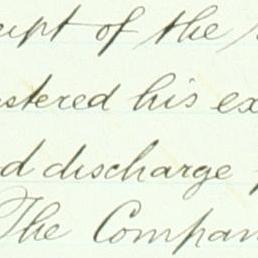 eipt of the
stered his ex
d discharge f
The Compan